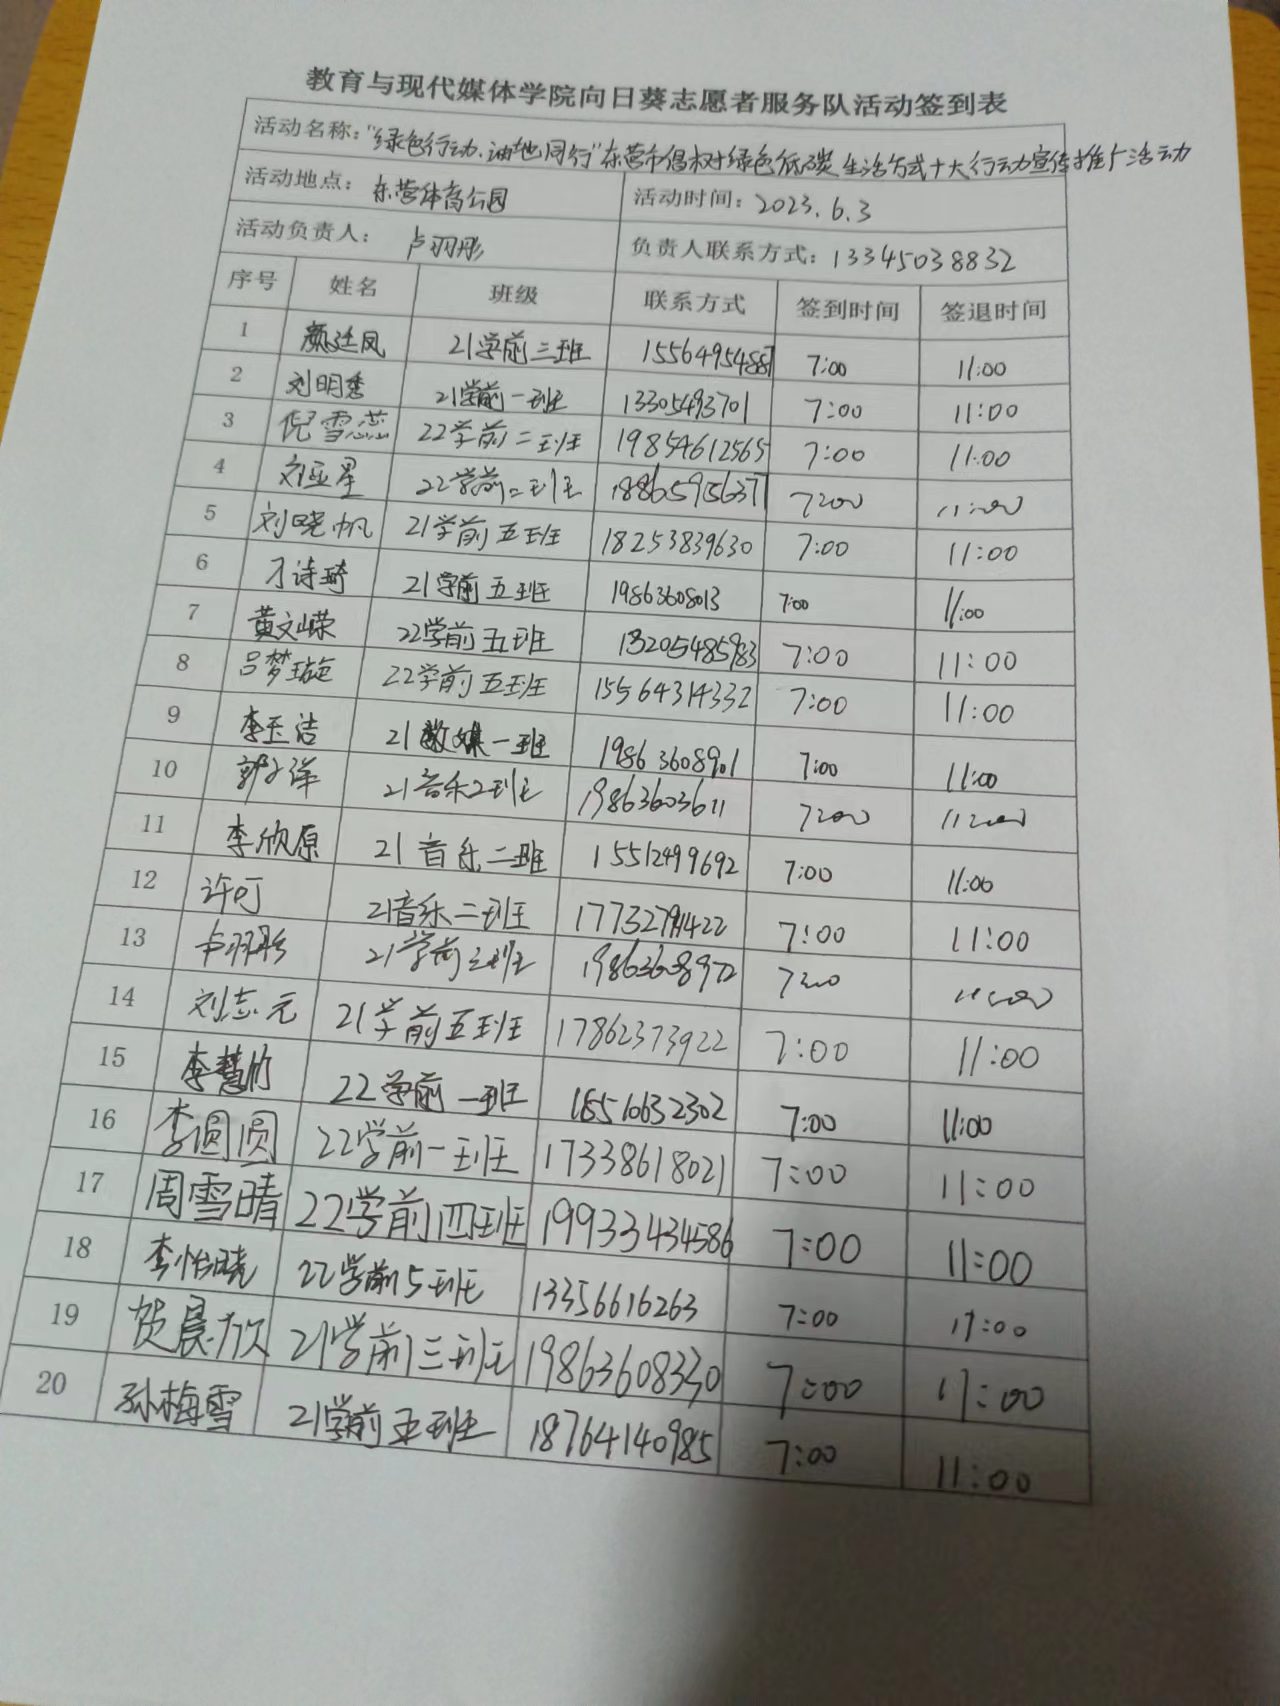 教育与现代媒体学院向日葵志愿者服务队活动签到表
活动名称："绿色行动、油地同行"东营市倡树绿色低碳生活方式十大行动宣传推广活动
活动地点：东营体育公园 活动时间：2023.6.3
活动负责人：卢羽彤 负责人联系方式：13345038832
序号 姓名 班级 联系方式 签到时间 签退时间
1 颜廷凤 21学前三班 15564954887 7:00 11:00
2 刘明秀 21学前一班 13305493701 7:00 11:00
3 倪雪蕊 22学前二班 19854612565 7:00 11:00
4 刘亚星 22学前二班 18865956377 7:00 11:00
5 刘晓帆 21学前五班 18253839630 7:00 11:00
6 刁诗琦 21学前五班 19863608013 7:00 11:00
7 黄文嵘 22学前五班 13205485983 7:00 11:00
8 吕梦璇 22学前五班 15564314332 7:00 11:00
9 李玉洁 21数媒一班 19863608901 7:00 11:00
10 郭子洋 21音乐2班 19863603611 7:00 11:00
11 李欣原 21音乐二班 15512499692 7:00 11:00
12 许可 21音乐二班 7:00 11:00
13 卢羽彤 21学前三班 19863608972 7:00 11:00
14 刘志元 21学前五班 17862373922 7:00 11:00
15 李慧竹 22学前一班 18510632302 7:00 11:00
16 李圆圆 22学前一班 17338618021 7:00 11:00
17 周雪晴 22学前四班 19933434586 7:00 11:00
18 李怡晓 22学前5班 13356616263 7:00 11:00
19 贺晨欣 21学前三班 19863608330 7:00 11:00
20 孙梅雪 21学前五班 18764140985 7:00 11:00